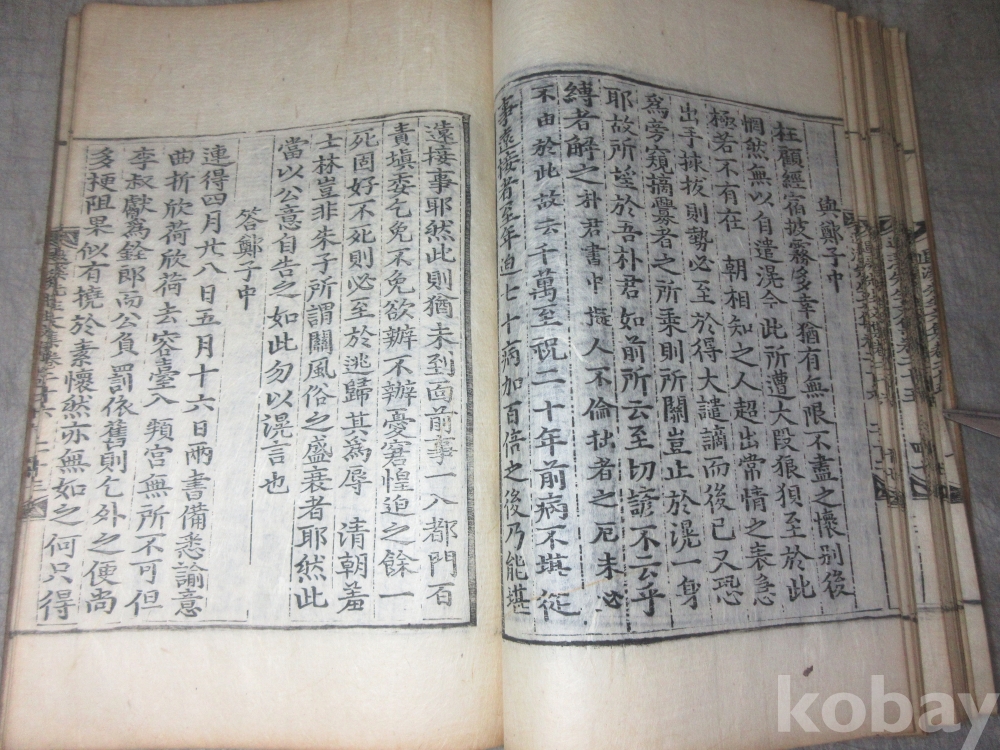 與鄭子中
枉顧經宿披霧多幸猶有無限不盡之懷別後
惘然無以自遣滉今此所遭大段狼狽至於此
極若不有在 朝相知之人超出常情之表急
出手捄拔則勢必至於得大譴謫而後已又恐
爲旁窺摘釁者之所乘則所關豈止於滉一身
耶故所望於吾朴君如前所云至切諺不云乎
縛者解之朴君書中擬人不倫拙者之厄未必
不由於此故云千萬至祝二十年前病不堪從
事遠接者至年迫七十病加百倍之後乃能堪
遠接事耶然此則猶未到面前事一入都門百
責塡委乞免不免欲辦不辦憂窘惶迫之餘一
死固好不死則必至於逃歸其爲辱 淸朝羞
士林豈非朱子所謂關風俗之盛衰者耶然此
當以公意自告之如此勿以滉言也
答鄭子中
連得四月廿八日五月十六日兩書備悉諭意
曲折欣荷欣荷去容臺入 類宮無所不可但
李叔獻爲銓郎而公負罰依舊則乞外之便尚
多梗阻果似有撓於素懷然亦無如之何只得
kobay